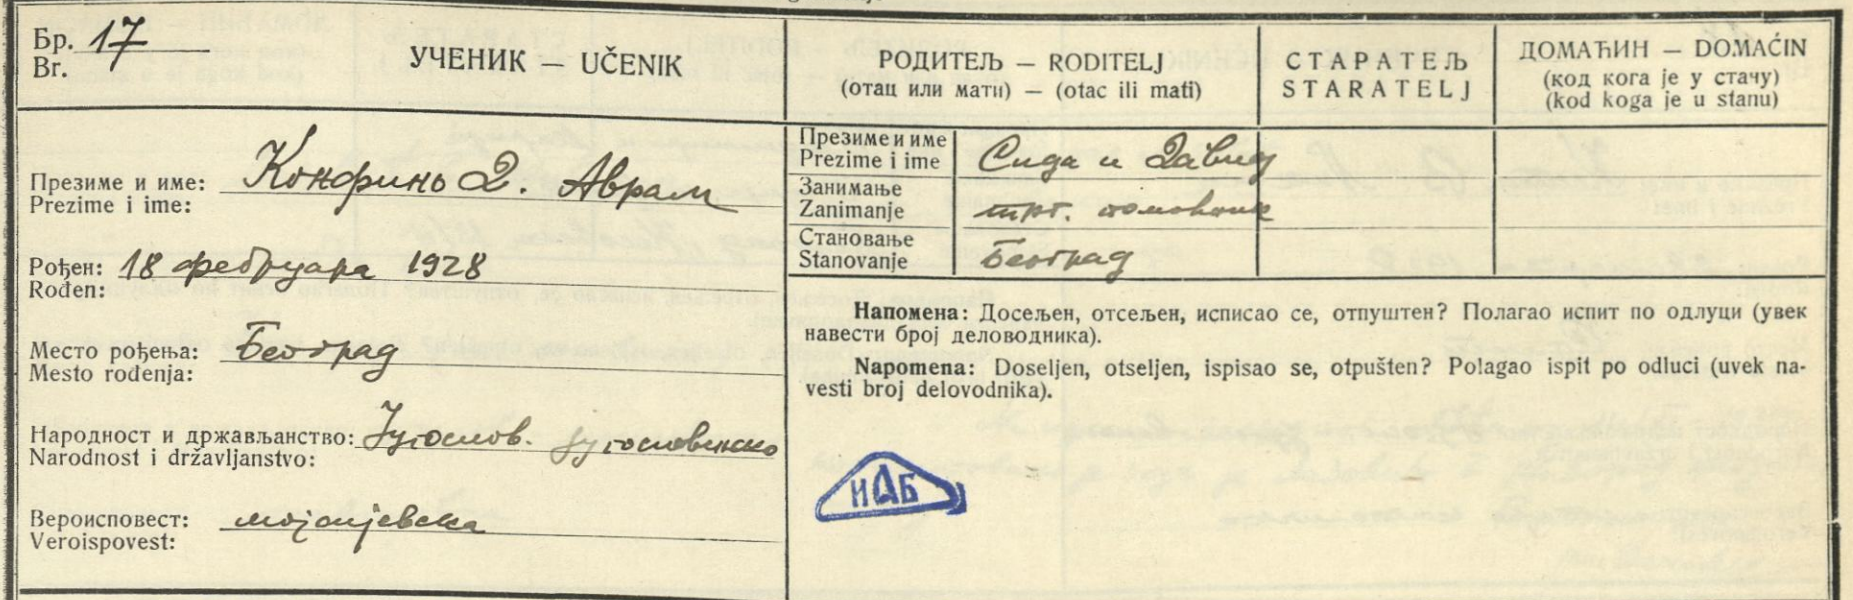 Бр. 17
Br.
УЧЕНИК — UČENIK
РОДИТЕЉ — RODITELJ
(отац или мати) — (otac ili mati)
СТАРАТЕЉ
STARATELJ
ДОМАЋИН — DOMAĆIN
(код кога је у стачу)
(kod koga je u stanu)
Презиме и име: Конфинь Д. Аврам
Prezime i ime:
Рођен: 18 фебруара 1928
Rođen:
Место рођења: Београд
Mesto rođenja:
Народност и држављанство: Југослов. југословенско
Narodnost i državljanstvo:
Вероисповест: мојсијевска
Veroispovest:
Презиме и име
Prezime i ime Сида и Давид
Занимање
Zanimanje трг. помоћник
Становање
Stanovanje Београд
Напомена: Досељен, отсељен, исписао се, отпуштен? Полагао испит по одлуци (увек
навести број деловодника).
Napomena: Doseljen, otseljen, ispisao se, otpušten? Polagao ispit po odluci (uvek na-
vesti broj delovodnika).
ИАБ